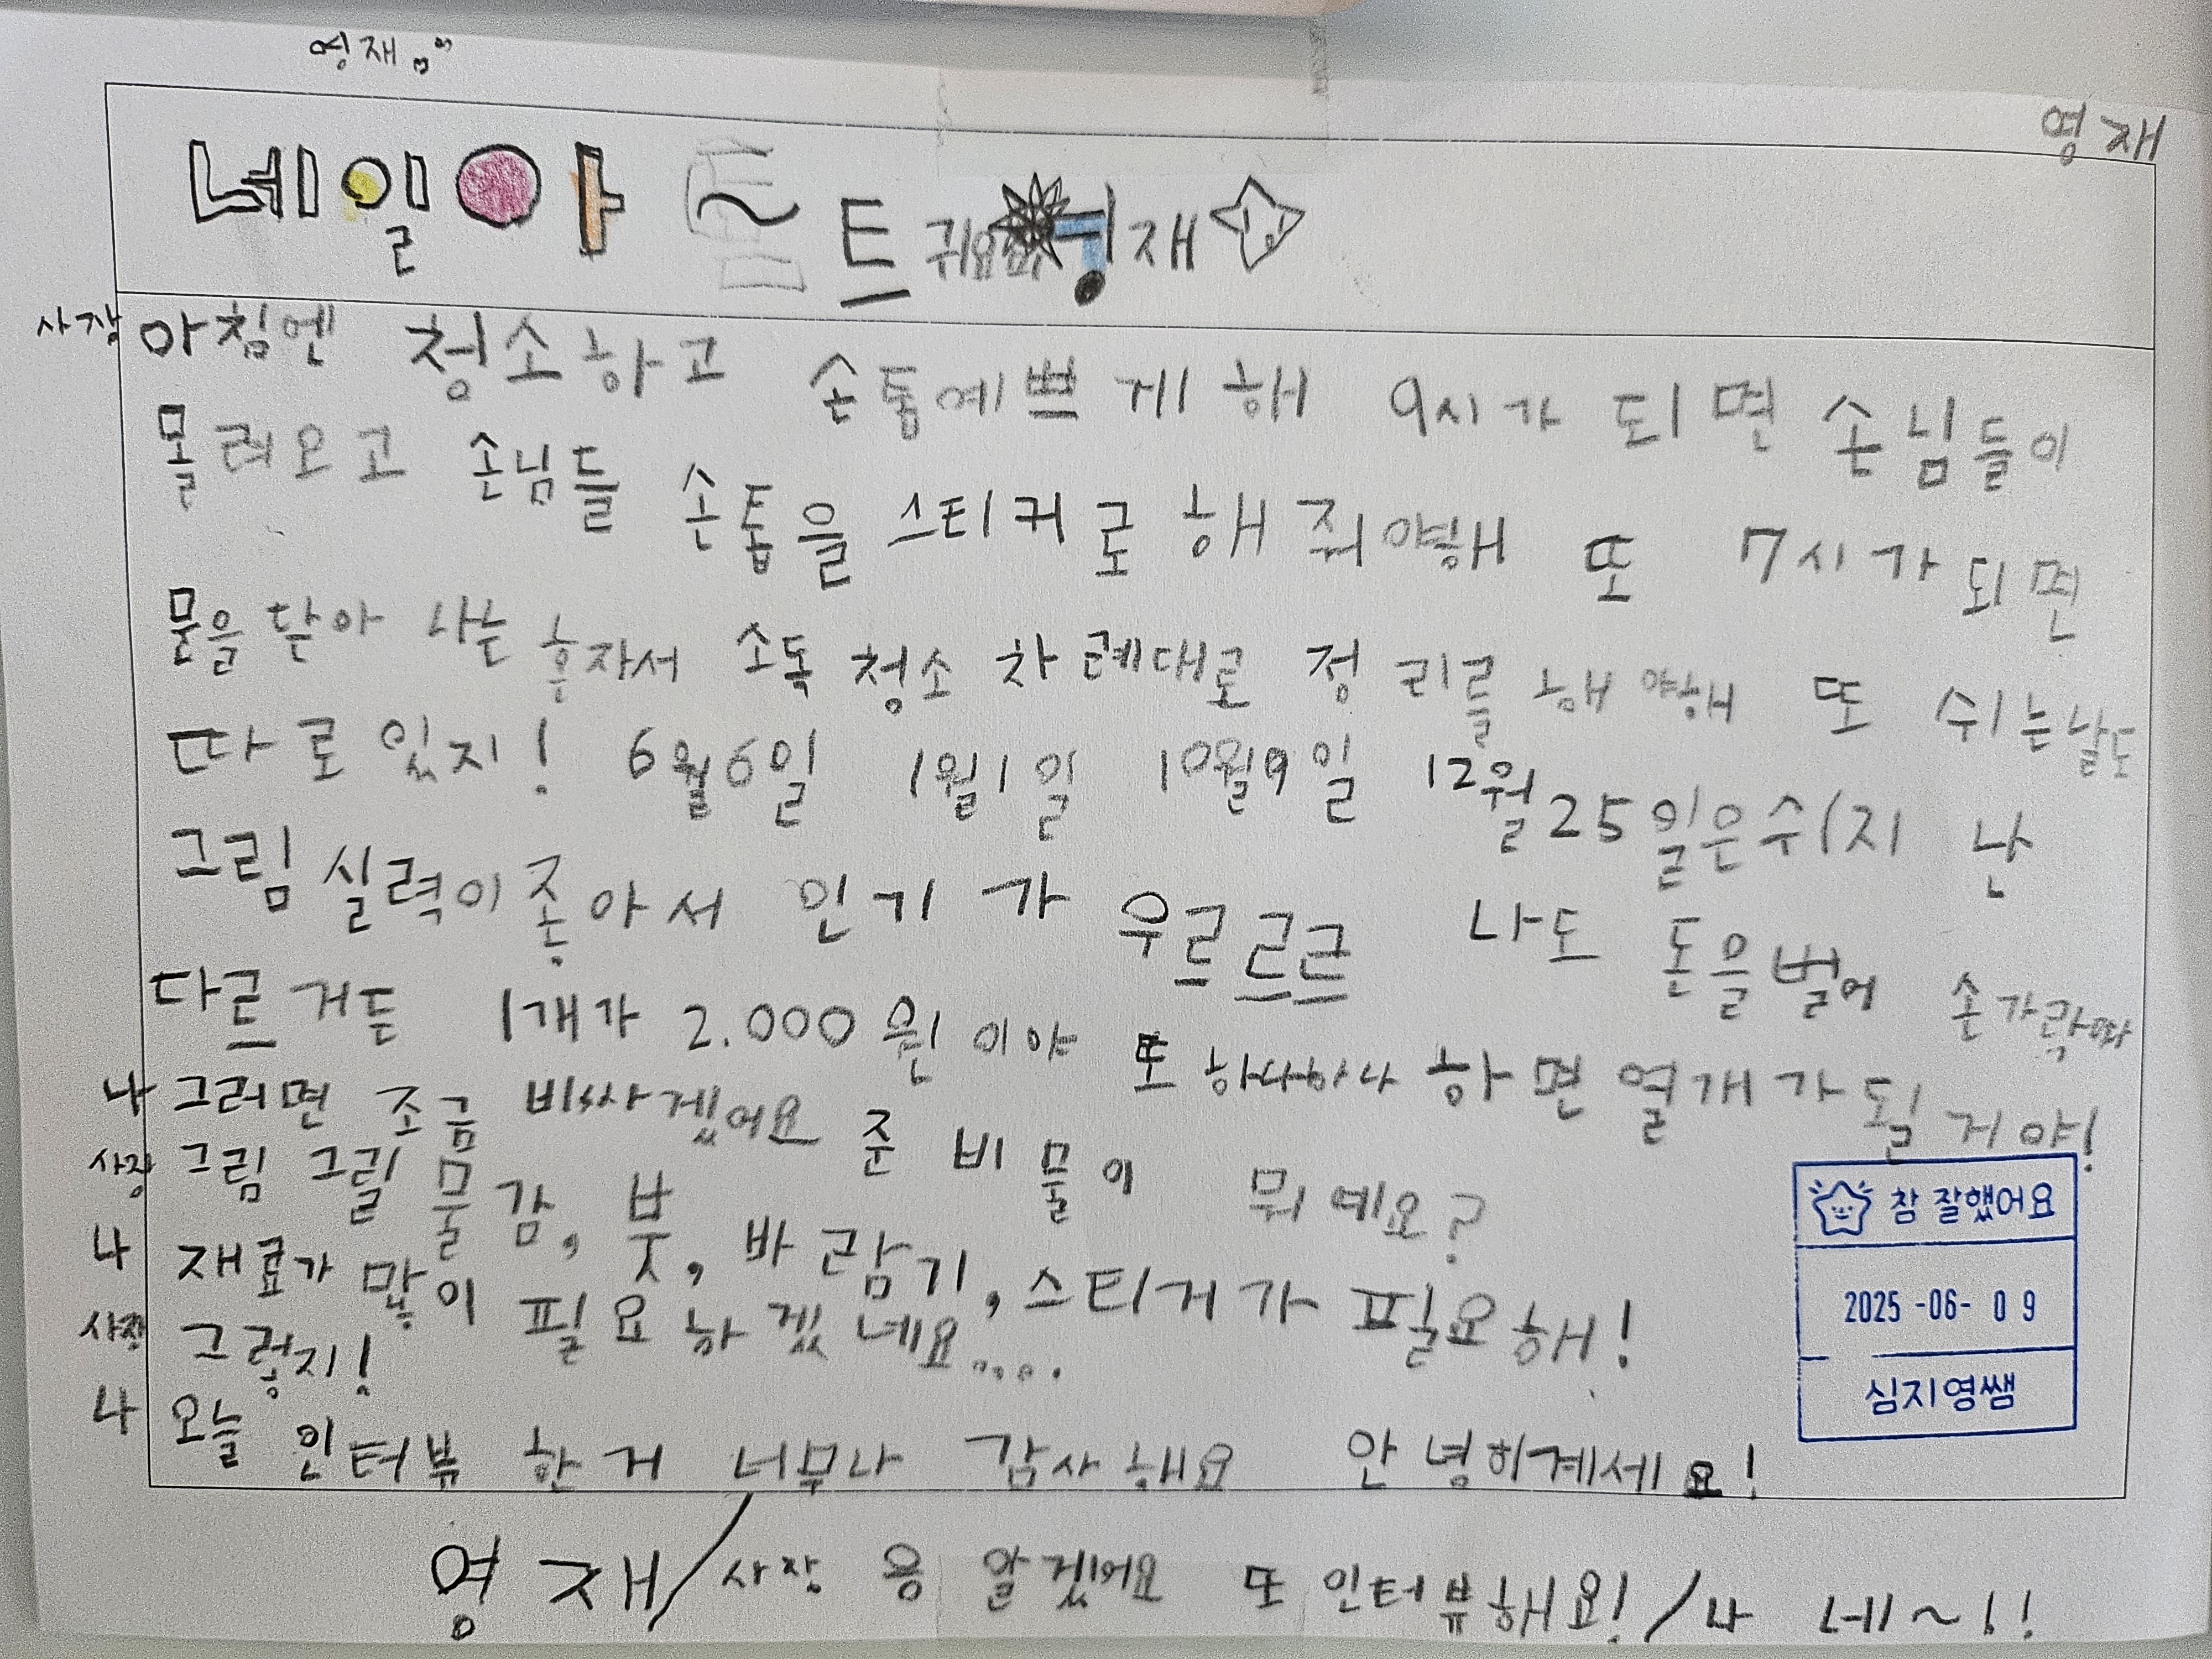 영재
영재
네일아~트 귀요 영재
사장 아침엔 청소하고 손톱예쁘게 해 9시가 되면 손님들이
몰려오고 손님들 손톱을 스티커로 해 줘야해 또 7시가 되면
문을 닫아 나는 혼자서 소독 청소 차례대로 정리를 해야해 또 쉬는날도
따로 있지! 6월6일 1월1일 10월9일 12월25일은쉬지 난
그림 실력이 좋아서 인기가 우르르르 나도 돈을벌어 손가락따
다르거든 1개가 2.000원이야 또 하나하나 하면 열개가 될거야!
나 그러면 조금 비싸겠어요 준비물이 뭐예요?
사장 그림 그릴 물감, 붓, 바람기, 스티커가 필요해!
나 재료가 많이 필요하겠네요....
사장 그렇지!
나 오늘 인터뷰 한거 너무나 감사해요 안녕히계세요!
영재/사장 응 알겠어요 또 인터뷰해요!/나 네~!!
참 잘했어요
2025-06-09
심지영쌤